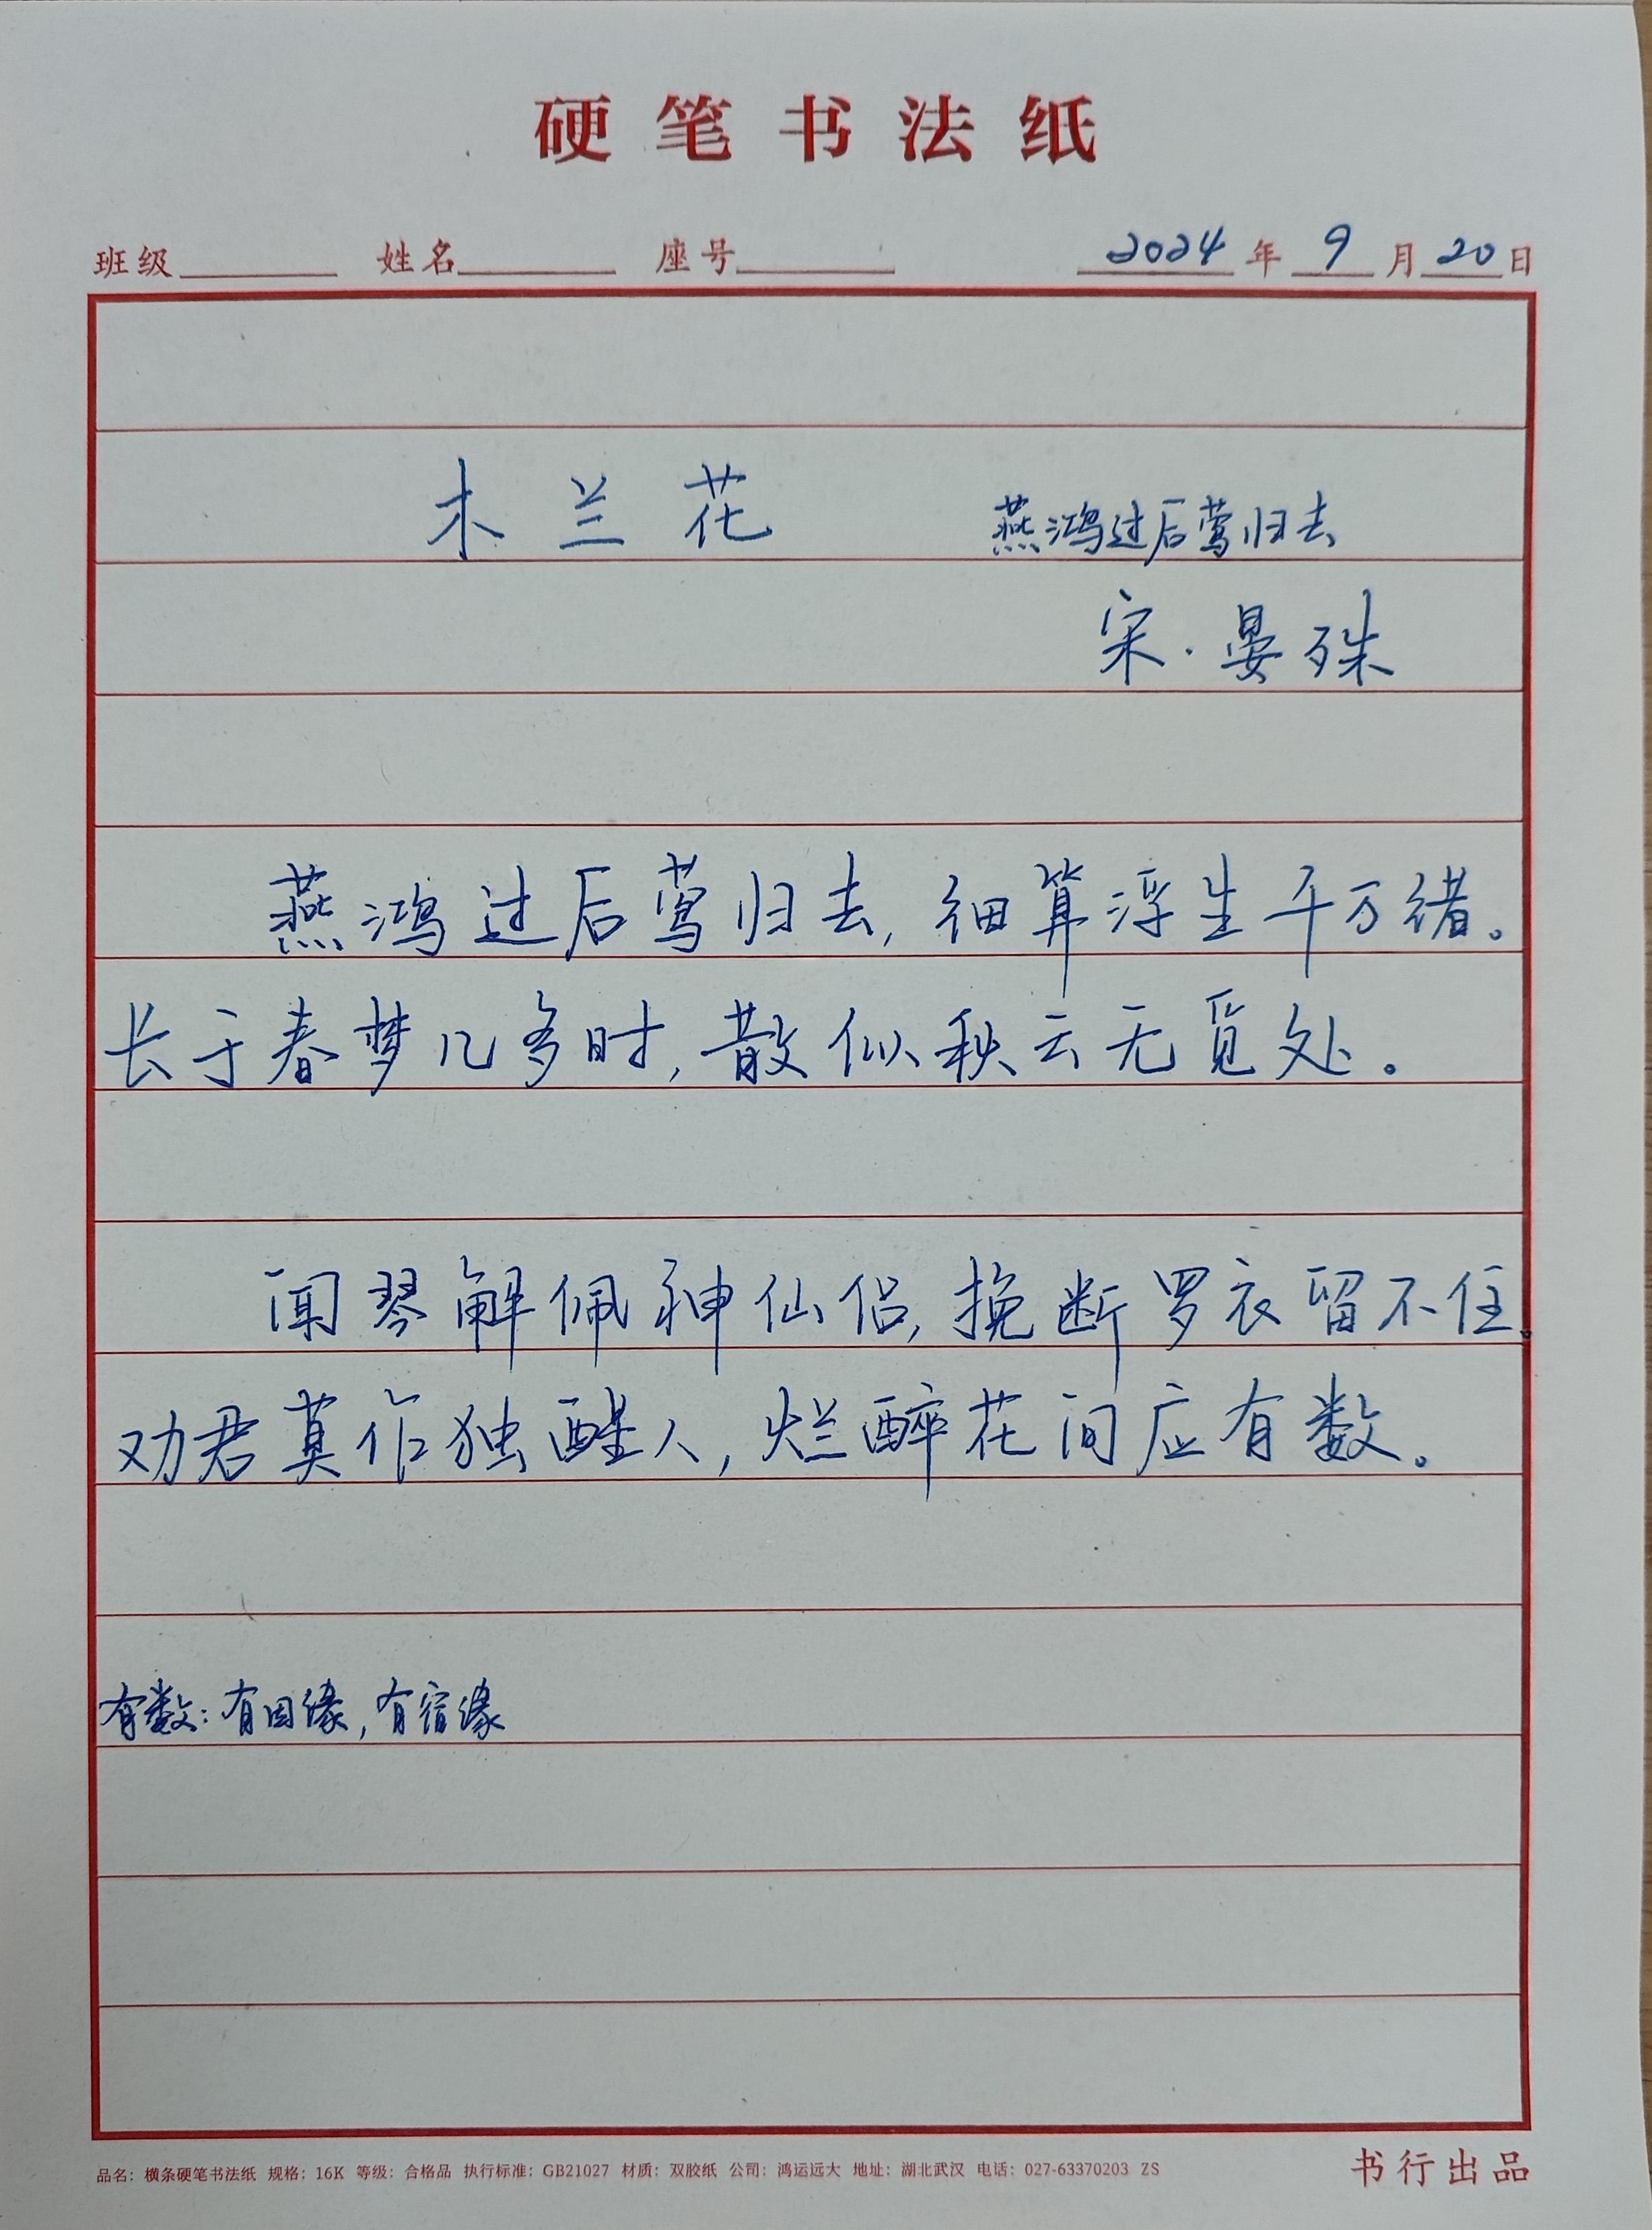 硬笔书法纸
班级 姓名 座号 2024年9月20日
木兰花 燕鸿过后莺归去
宋·晏殊
燕鸿过后莺归去,细算浮生千万绪。
长于春梦几多时,散似秋云无觅处。
闻琴解佩神仙侣,挽断罗衣留不住。
劝君莫作独醒人,烂醉花间应有数。
有数:有因缘,有宿缘
品名:横条硬笔书法纸 规格:16K 等级:合格品 执行标准:GB21027 材质:双胶纸 公司:鸿运远大 地址:湖北武汉 电话:027-63370203 ZS
书行出品